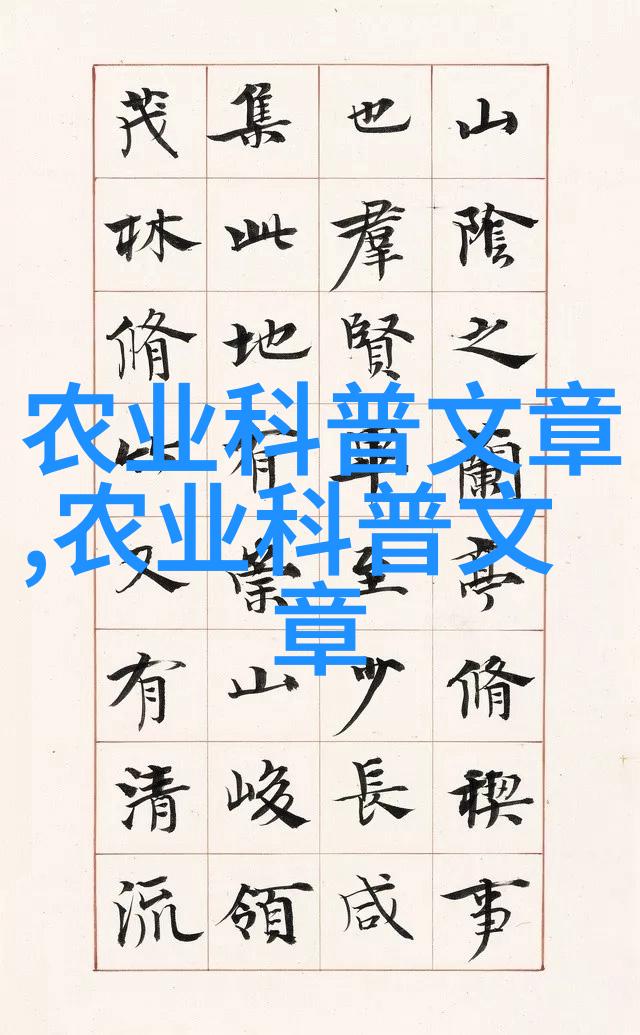 山陰之蘭亭脩稧事
也羣賢畢至少長咸
集此地有崇山峻領
茂林脩竹又有清流
农业科普文章
,农业科普文
章